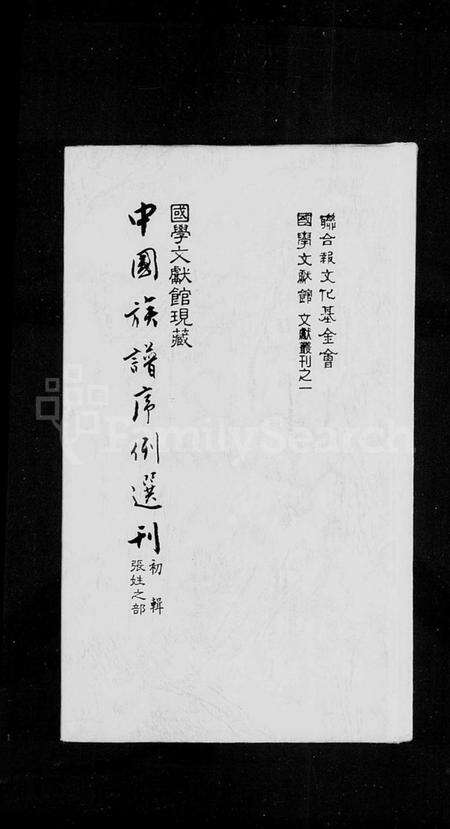 聯合報文化基金會
國學文獻館 文獻叢刊之一
國學文獻館現藏
中國族譜序例選刊
初輯
張姓之部
FamilySearch